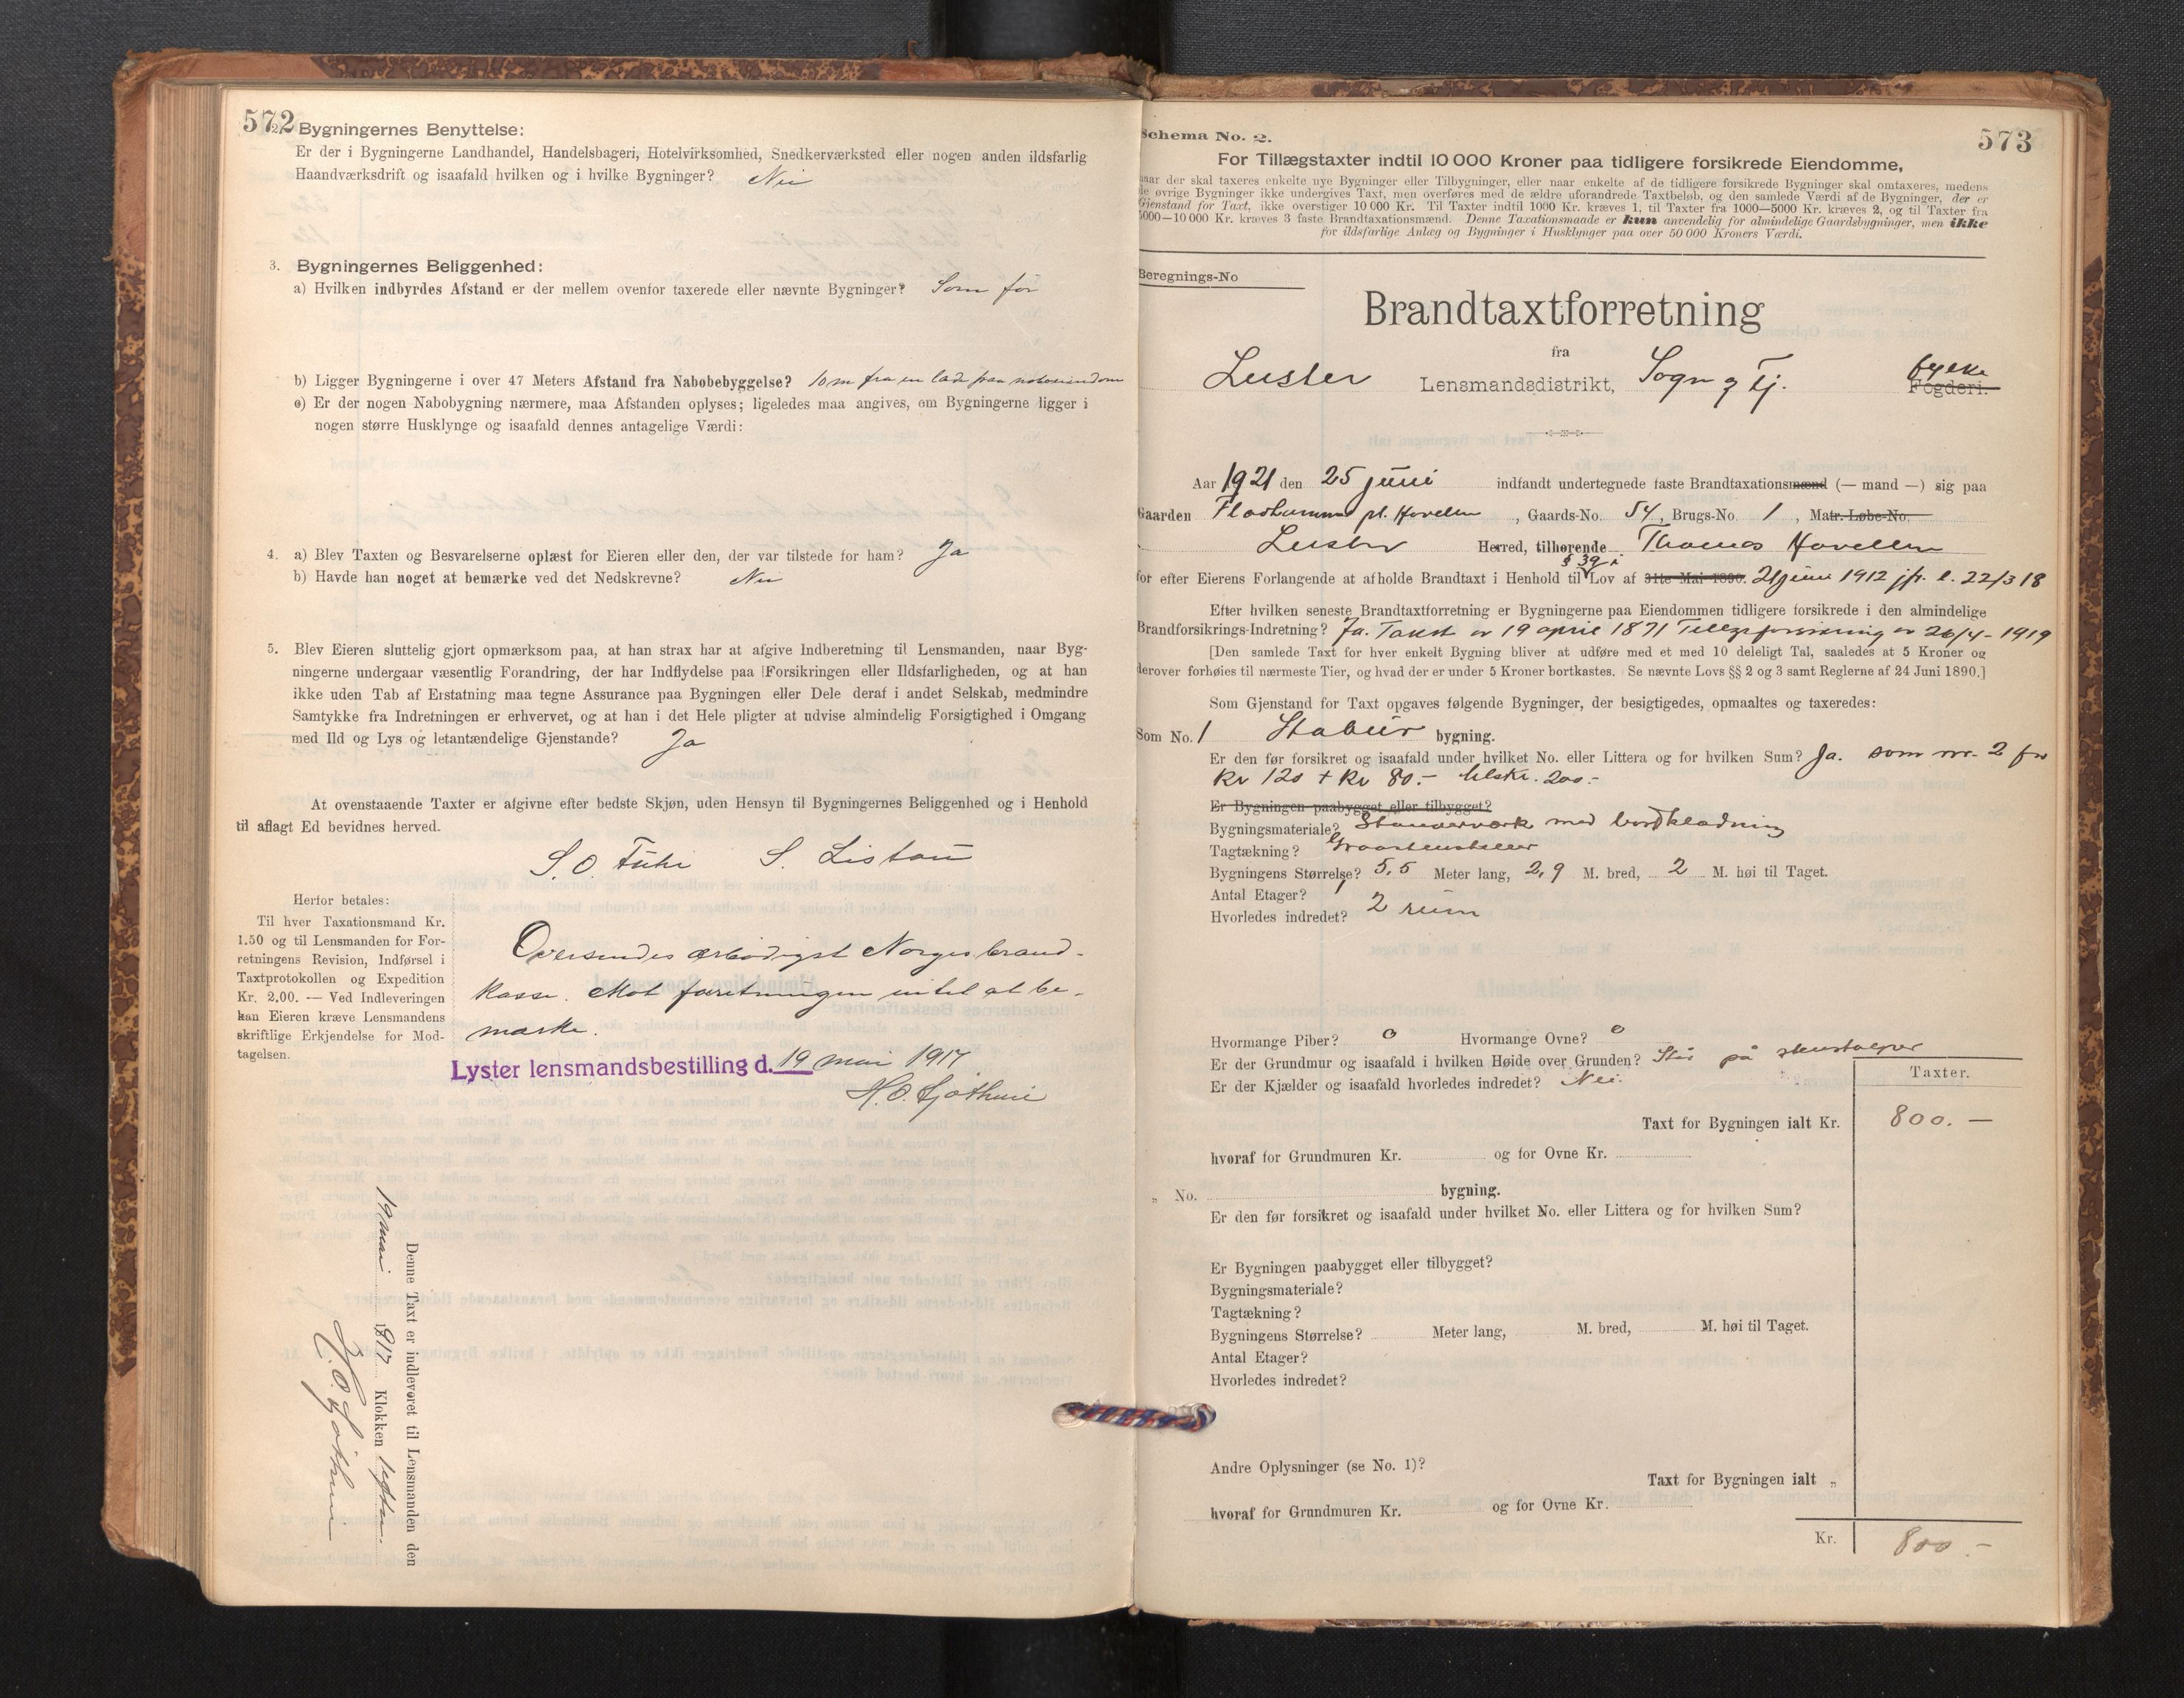 572
2. Bygningernes Benyttelse:
Er der i Bygningerne Landhandel, Handelsbageri, Hotelvirksomhed, Snedkerværksted eller nogen anden ildsfarlig
Haandværksdrift og isaafald hvilken og i hvilke Bygninger? Nei
3. Bygningernes Beliggenhed:
a) Hvilken indbyrdes Afstand er der mellem ovenfor taxerede eller nævnte Bygninger? Som før
b) Ligger Bygningerne i over 47 Meters Afstand fra Nabobebyggelse? 10 m fra en lade paa naboeiendom
c) Er der nogen Nabobygning nærmere, maa Afstanden oplyses; ligeledes maa angives, om Bygningerne ligger i
nogen større Husklynge og isaafald dennes antagelige Værdi:
4. a) Blev Taxten og Besvarelserne oplæst for Eieren eller den, der var tilstede for ham? Ja
b) Havde han noget at bemærke ved det Nedskrevne? Nei
5. Blev Eieren sluttelig gjort opmærksom paa, at han strax har at afgive Indberetning til Lensmanden, naar Byg-
ningerne undergaar væsentlig Forandring, der har Indflydelse paa Forsikringen eller Ildsfarligheden, og at han
ikke uden Tab af Erstatning maa tegne Assurance paa Bygningen eller Dele deraf i andet Selskab, medmindre
Samtykke fra Indretningen er erhvervet, og at han i det Hele pligter at udvise almindelig Forsigtighed i Omgang
med Ild og Lys og letantændelige Gjenstande? Ja
At ovenstaaende Taxter er afgivne efter bedste Skjøn, uden Hensyn til Bygningernes Beliggenhed og i Henhold
til aflagt Ed bevidnes herved.
S. O. Fuhr S. Listau
Herfor betales:
Til hver Taxationsmand Kr.
1.50 og til Lensmanden for For-
retningens Revision, Indførsel i
Taxtprotokollen og Expedition
Kr. 2.00. — Ved Indleveringen
kan Eieren kræve Lensmandens
skriftlige Erkjendelse for Mod-
tagelsen.
Oversendes ærbødigst Norges brand-
kasse. Mot forretningen intet at be-
mærke.
Lyster lensmandsbestilling d. 19 mai 1917
Denne Taxt er indleveret til Lensmanden den
19 mai 1917 Klokken
573
Schema No. 2.
For Tillægstaxter indtil 10 000 Kroner paa tidligere forsikrede Eiendomme,
naar der skal taxeres enkelte nye Bygninger eller Tilbygninger, eller naar enkelte af de tidligere forsikrede Bygninger skal omtaxeres, medens
de øvrige Bygninger ikke undergives Taxt, men overføres med de ældre uforandrede Taxtbeløb, og den samlede Værdi af de Bygninger, der er
Gjenstand for Taxt, ikke overstiger 10 000 Kr. Til Taxter indtil 1000 Kr. kræves 1, til Taxter fra 1000—5000 Kr. kræves 2, og til Taxter fra
5000—10 000 Kr. kræves 3 faste Brandtaxationsmænd. Denne Taxationsmaade er kun anvendelig for almindelige Gaardsbygninger, men ikke
for ildsfarlige Anlæg og Bygninger i Husklynger paa over 50 000 Kroners Værdi.
Beregnings-No
Brandtaxtforretning
fra
Luster Lensmandsdistrikt, Sogn og Fj. fylke Fogderi.
Aar 1921 den 25 juni indfandt undertegnede faste Brandtaxationsmænd (— mand —) sig paa
Gaarden Flodhammer pl. Hovellen, Gaards-No. 54, Brugs-No. 1, Matr. Løbe-No.
Luster Herred, tilhørende Thomas Hovellen
for efter Eierens Forlangende at afholde Brandtaxt i Henhold til § 39 i Lov af 31te Mai 1890. 21 juni 1912 jfr. l. 22/3 18
Efter hvilken seneste Brandtaxtforretning er Bygningerne paa Eiendommen tidligere forsikrede i den almindelige
Brandforsikrings-Indretning? Ja. Takst av 19 april 1871 Tillægsforsikring av 26/4-1919
[Den samlede Taxt for hver enkelt Bygning bliver at udføre med et med 10 deleligt Tal, saaledes at 5 Kroner og
derover forhøies til nærmeste Tier, og hvad der er under 5 Kroner bortkastes. Se nævnte Lovs §§ 2 og 3 samt Reglerne af 24 Juni 1890.]
Som Gjenstand for Taxt opgaves følgende Bygninger, der besigtigedes, opmaaltes og taxeredes:
Som No. 1 Stabur bygning.
Er den før forsikret og isaafald under hvilket No. eller Littera og for hvilken Sum? Ja. som nr. 2 for
Kr 120 + Kr 80.- tilsk. 200.-
Er Bygningen paabygget eller tilbygget?
Bygningsmateriale? Stanverværk med bordklædning
Tagtækning? Graastensheller
Bygningens Størrelse? 5,5 Meter lang, 2,9 M. bred, 2 M. høi til Taget.
Antal Etager? 1
Hvorledes indredet? 2 rum
Hvormange Piber? 0 Hvormange Ovne? 0
Er der Grundmur og isaafald i hvilken Høide over Grunden? Står på stenstolper
Er der Kjælder og isaafald hvorledes indredet? Nei.
Taxter.
Taxt for Bygningen ialt Kr. 800. —
hvoraf for Grundmuren Kr. og for Ovne Kr.
„ No. bygning.
Er den før forsikret og isaafald under hvilket No. eller Littera og for hvilken Sum?
Er Bygningen paabygget eller tilbygget?
Bygningsmateriale?
Tagtækning?
Bygningens Størrelse? Meter lang, M. bred, M. høi til Taget.
Antal Etager?
Hvorledes indredet?
Andre Oplysninger (se No. 1)?
Taxt for Bygningen ialt „
hvoraf for Grundmuren Kr. og for Ovne Kr.
Kr. 800.-